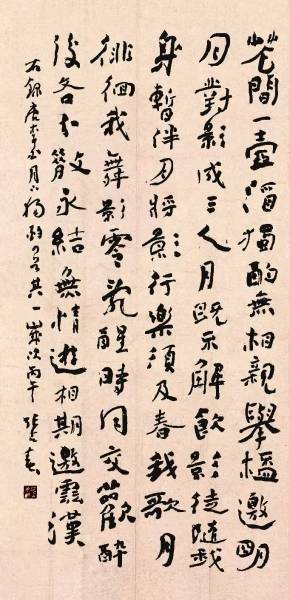 花間一壺酒獨酌無相親舉杯邀明
月對影成三人月既不解飲影徒隨我
身暫伴月將影行樂須及春我歌月
徘徊我舞影零亂醒時同交歡醉
後各分散永結無情遊相期邈雲漢
右錄唐李白月下獨酌其一歲次丙午